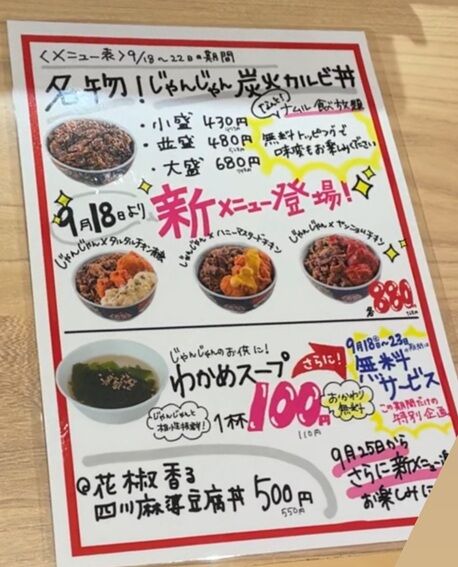 〈メニュー表〉9/18〜22の期間
名物!じゃんじゃん炭火カルビ丼
・小盛 430円
・並盛 480円
・大盛 680円
ナムル食べ放題
無料トッピングで
味変もお楽しみください
9月18日より新メニュー登場!
じゃんじゃん×タルタルチキン
じゃんじゃん×ハニーマスタードチキン
じゃんじゃん×ヤンニョムチキン
各880円
じゃんじゃんのお供に!
わかめスープ
じゃんじゃんと
相性抜群!
1杯100円
110円
おかわり
無料
さらに!
9月18日〜23日
無料
サービス
この期間だけの
特別企画
花椒香る
四川麻婆豆腐丼 500円
550円
9月25日から
さらに新メニュー
お楽しみに